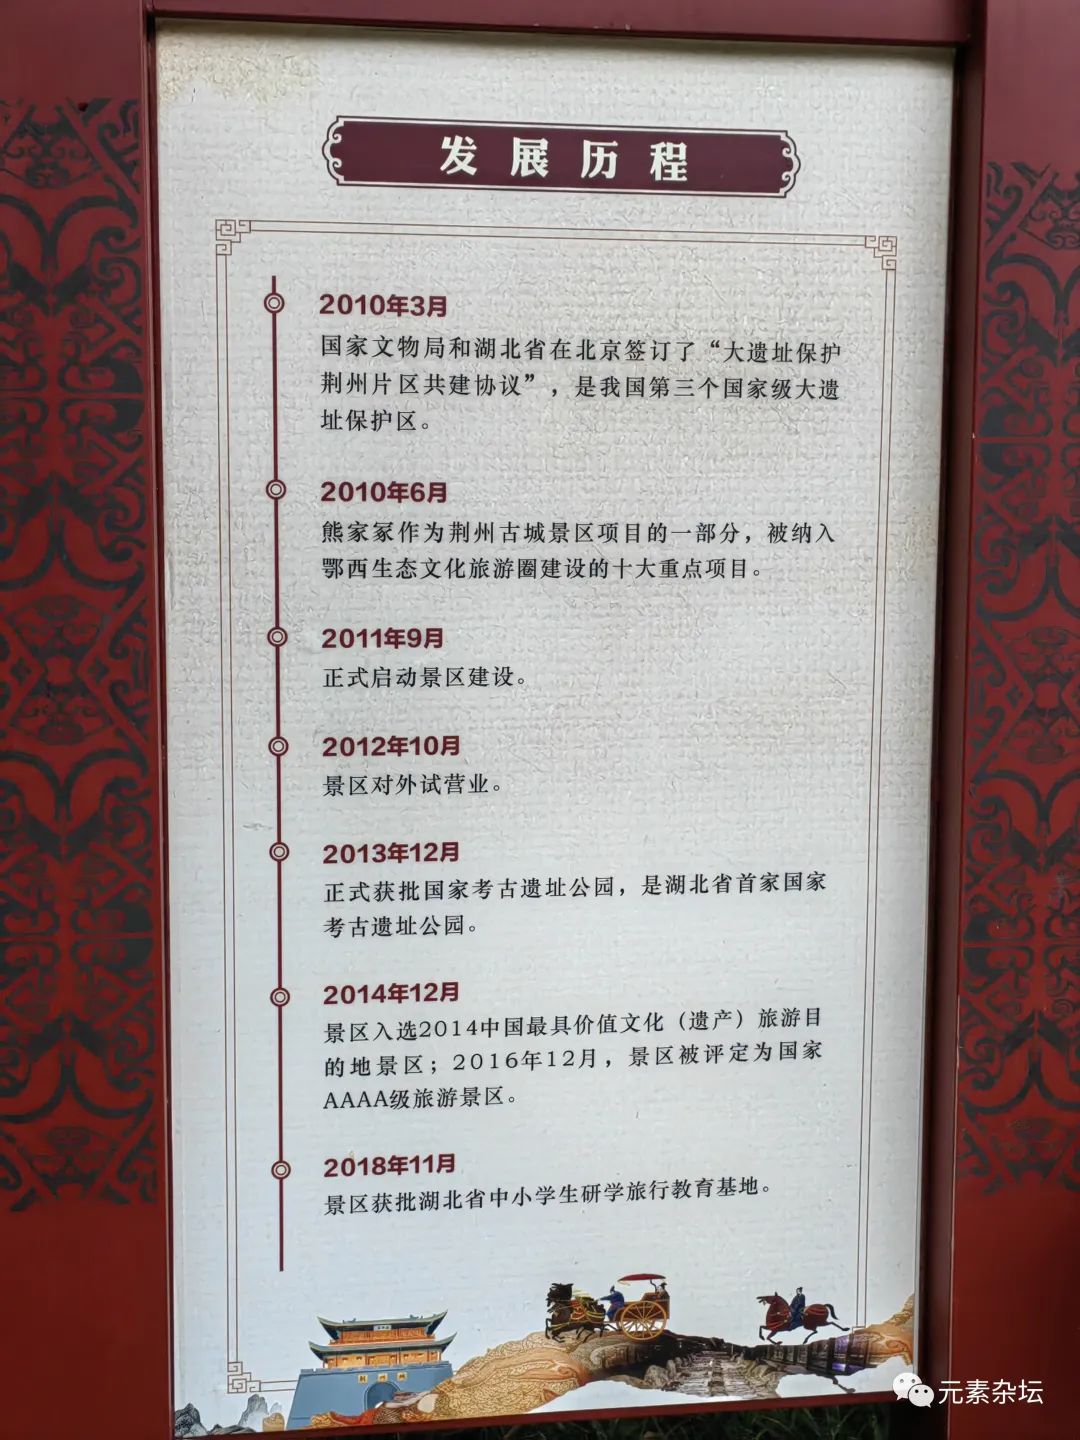 发展历程
2010年3月
国家文物局和湖北省在北京签订了“大遗址保护
荆州片区共建协议”，是我国第三个国家级大遗
址保护区。
2010年6月
熊家冢作为荆州古城景区项目的一部分，被纳入
鄂西生态文化旅游圈建设的十大重点项目。
2011年9月
正式启动景区建设。
2012年10月
景区对外试营业。
2013年12月
正式获批国家考古遗址公园，是湖北省首家国家
考古遗址公园。
2014年12月
景区入选2014中国最具价值文化（遗产）旅游目
的地景区；2016年12月，景区被评定为国家
AAAA级旅游景区。
2018年11月
景区获批湖北省中小学生研学旅行教育基地。
元素杂坛